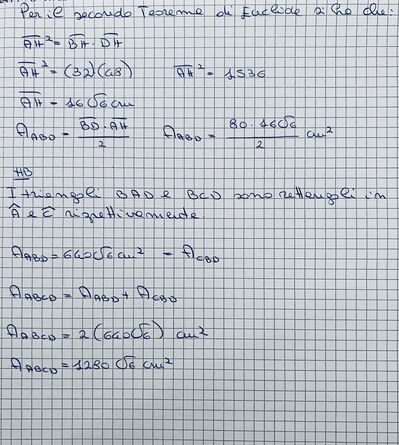 Per il secondo Teorema di Euclide si ha che:
AH² = BH · DH
AH² = (32)(48) AH² = 1536
AH = 16√6 cm
A_ABD = BD · AH / 2 A_ABD = 80 · 16√6 / 2 cm²
NB
I triangoli BAD e BCD sono rettangoli in
Â e Ĉ rispettivamente.
A_ABD = 640√6 cm² = A_CBD
A_ABCD = A_ABD + A_CBD
A_ABCD = 2(640√6) cm²
A_ABCD = 1280√6 cm²